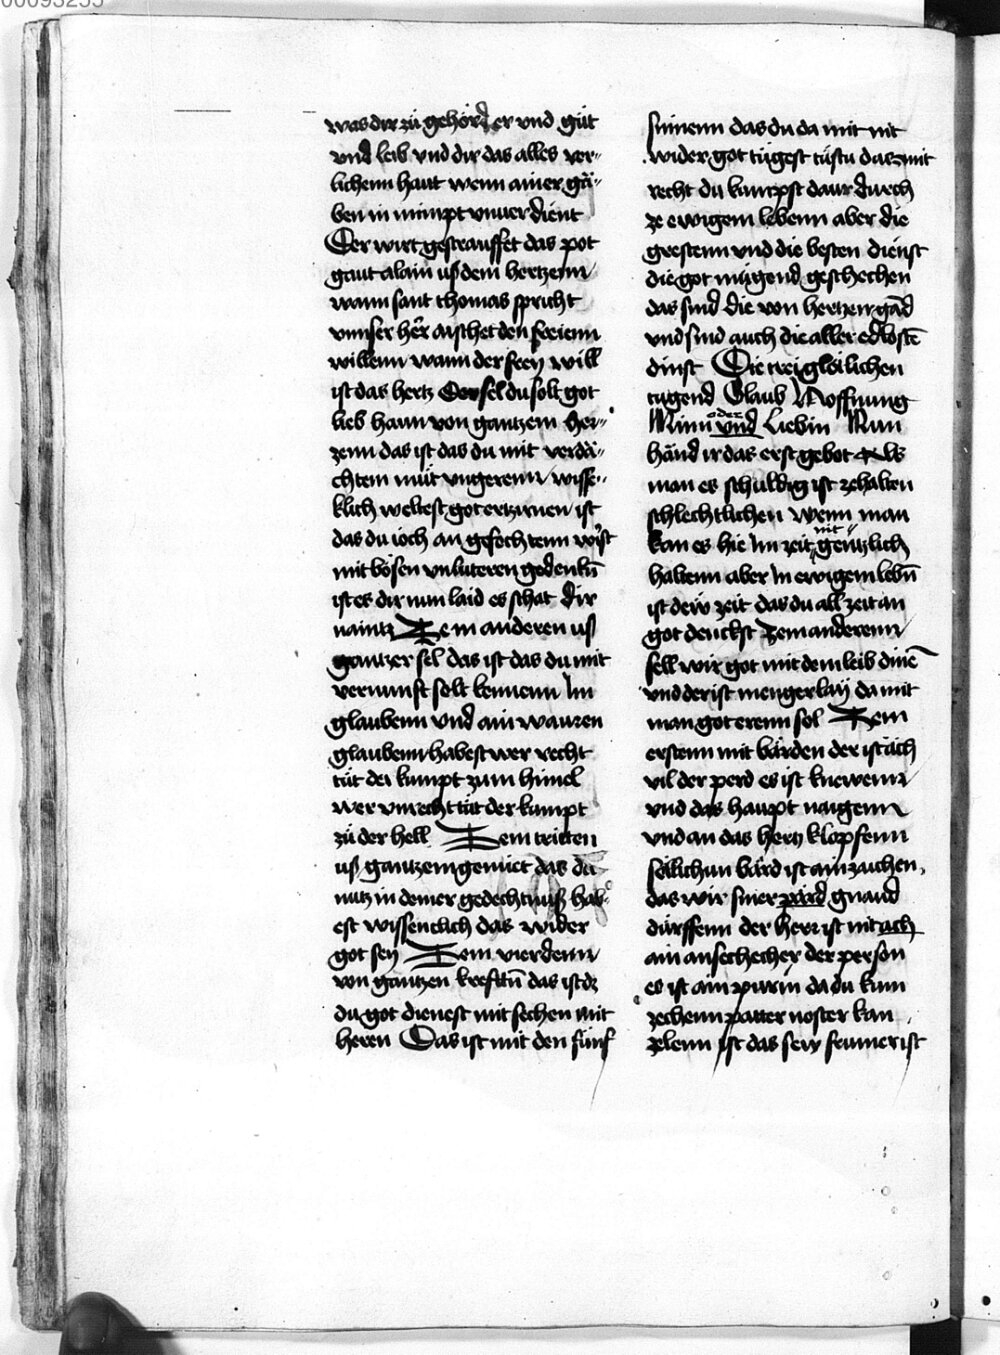 00093255
was dir zů gehörd er vnd gůt
vnd leib vnd dir das alles ver„
lichenn haut wenn ainer gä„
ben in nimpt vnuerdient
Der wirt gestrauffet das pot
gaut alain uß dem hertzenn
wann sant thomas spricht
vnnser her̃ aischet den freienn
willenn wann der freÿ will
ist das hertz du solt got
lieb hann von gantzem her„
zenn das ist das du mit verdä„
chtem můt vngerenn wisse„
klich weltest got ertzürnen ist
das du ioch an gefochtenn wirst
mit bösen vnluteren gedenkñ
ist es dir nun laid es schat dir
naintz Zem anderen uß
gantzer sel das ist das du mit
vernunft solt kennenn Im
glaubenn vnd ain waurēn
glaubenn habest wer recht
tůt der kumpt zum himel
wer vnrecht tůt der kumpt
zů der hell Zem tritten
uß gantzem gemüet das du
nutz in deiner gedechtnuß hab„
est wissenclich das wider
got seÿ Zem vierdenn
von gantzen krefftñ das ist dz
du got dienest mit sechen mit
heren Das ist mit den fünf
sinnenn das du da mit nit
wider got tügest tůstu das mit
recht du kumpst daur durch
ze ewigem lebenn aber die
grestenn vnd die besten dienst
die got mügend geschechen
das sind die von hertzen gãd
vnd sind auch die aller edlostẽ
dinst Die trei götlichen
tugend Glaub Hoffnung
Minn oder vnd Liebin Nun
händ ir das erst gebot Als
man es schuldig ist zehalten
schlechtlichen wenn man
kan es hie Im zeit nit gentzlich
haltenn aber In ewigem lebñ
ist dein zeit das du all zeit an
got denckst Zem anderenn
sell wir got mit dem leib dinẽ
vnd der ist menger laÿ da mit
man got erenn sol Zem
erstenn mit bärden der ist äch
vil der perd es ist knewenn
vnd das haupt naigenn
vnd an das hertz klopfenn
sölichun bärd ist ain zaichen
das wir siner pärd gnaud
dürffenn der herr ist nit ach
ain ansechecher der person
es ist ain purin da du kum
zechenn patter noster kan
zelenn ist das seÿ frummer ist